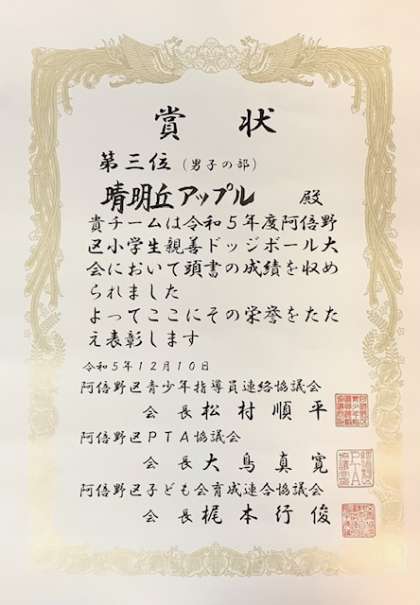 賞状
第三位(男子の部)
晴明丘アップル 殿
貴チームは令和5年度阿倍野
区小学生親善ドッジボール大
会において頭書の成績を収め
られました
よってここにその栄誉をたた
え表彰します
令和5年12月10日
阿倍野区青少年指導員連絡協議会
会長 松村順平
阿倍野区PTA協議会
会長 大鳥真寛
阿倍野区子ども会育成連合協議会
会長 梶本行俊